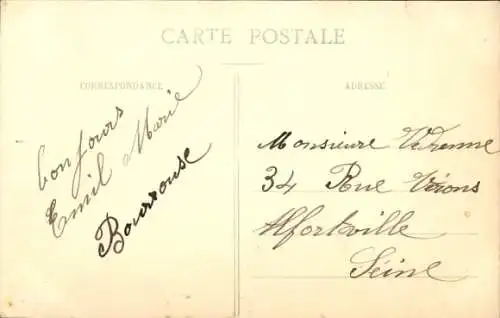 CARTE POSTALE
CORRESPONDANCE
ADRESSE
bonjours
Emil Marie
Bourrouse
Monsieure Varenne
34 Rue Vérons
Alfortville
Séine